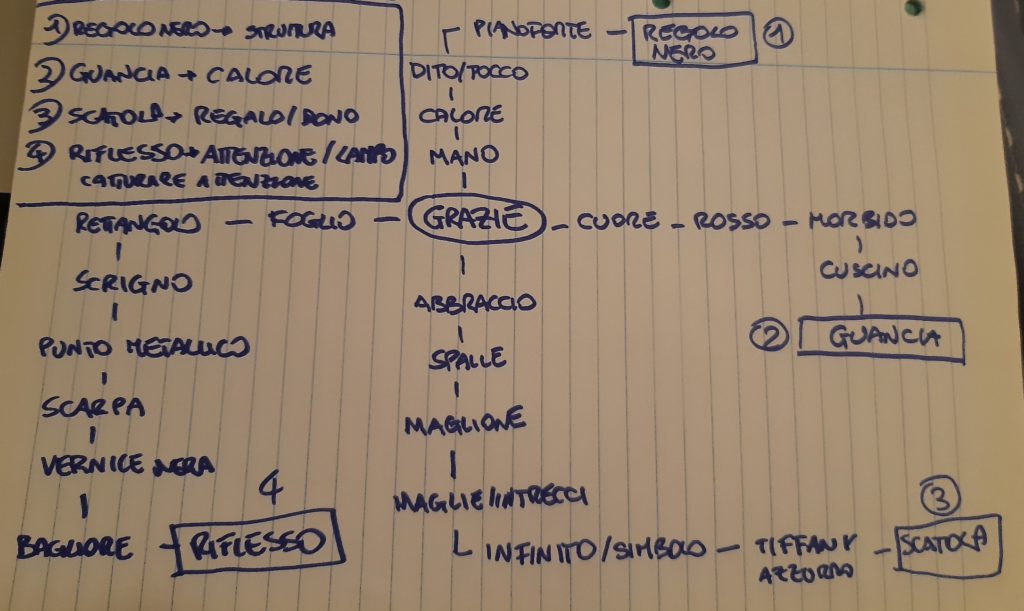 1) REGOLO NERO → STRUTTURA
2) GUANCIA → CALORE
3) SCATOLA → REGALO/DONO
4) RIFLESSO → ATTENZIONE/LAMPO
CATTURARE ATTENZIONE
PIANOFORTE - REGOLO
NERO
1
DITO/TOCCO
CALORE
MANO
RETTANGOLO - FOGLIO - GRAZIE - CUORE - ROSSO - MORBIDO
CUSCINO
2 GUANCIA
SCRIGNO
PUNTO METALLICO
SCARPA
VERNICE NERA
BAGLIORE - RIFLESSO
4
ABBRACCIO
SPALLE
MAGLIONE
MAGLIE/INTRECCI
INFINITO/SIMBOLO - TIFFANY - SCATOLA
AZZURRO
3